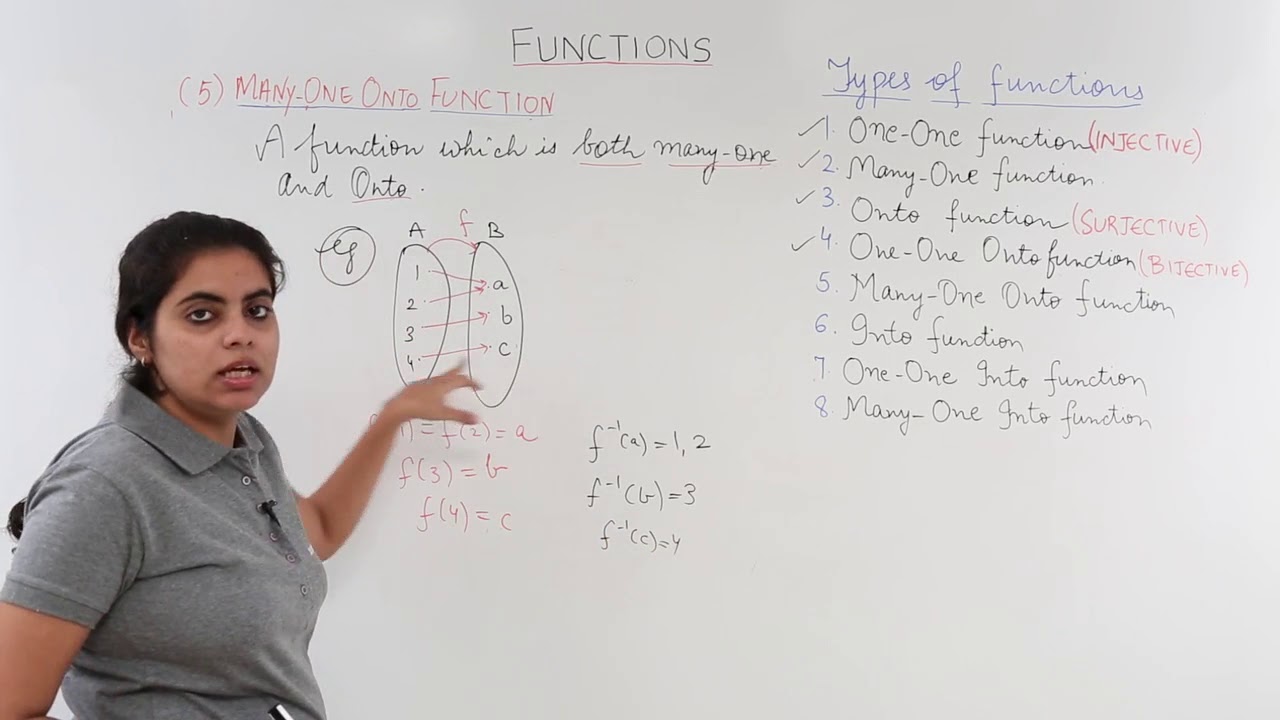 FUNCTIONS
(5) MANY-ONE ONTO FUNCTION
A function which is both many-one
and Onto.
eg
f
A B
1
2
3
4
a
b
c
1) = f(2) = a
f(3) = b
f(4) = c
f⁻¹(a) = 1, 2
f⁻¹(b) = 3
f⁻¹(c) = 4
Types of functions
1. One-One function (INJECTIVE)
2. Many-One function.
3. Onto function (SURJECTIVE)
4. One-One Onto function (BIJECTIVE)
5. Many-One Onto function
6. Into function
7 One-One Into function
8. Many-One Into function